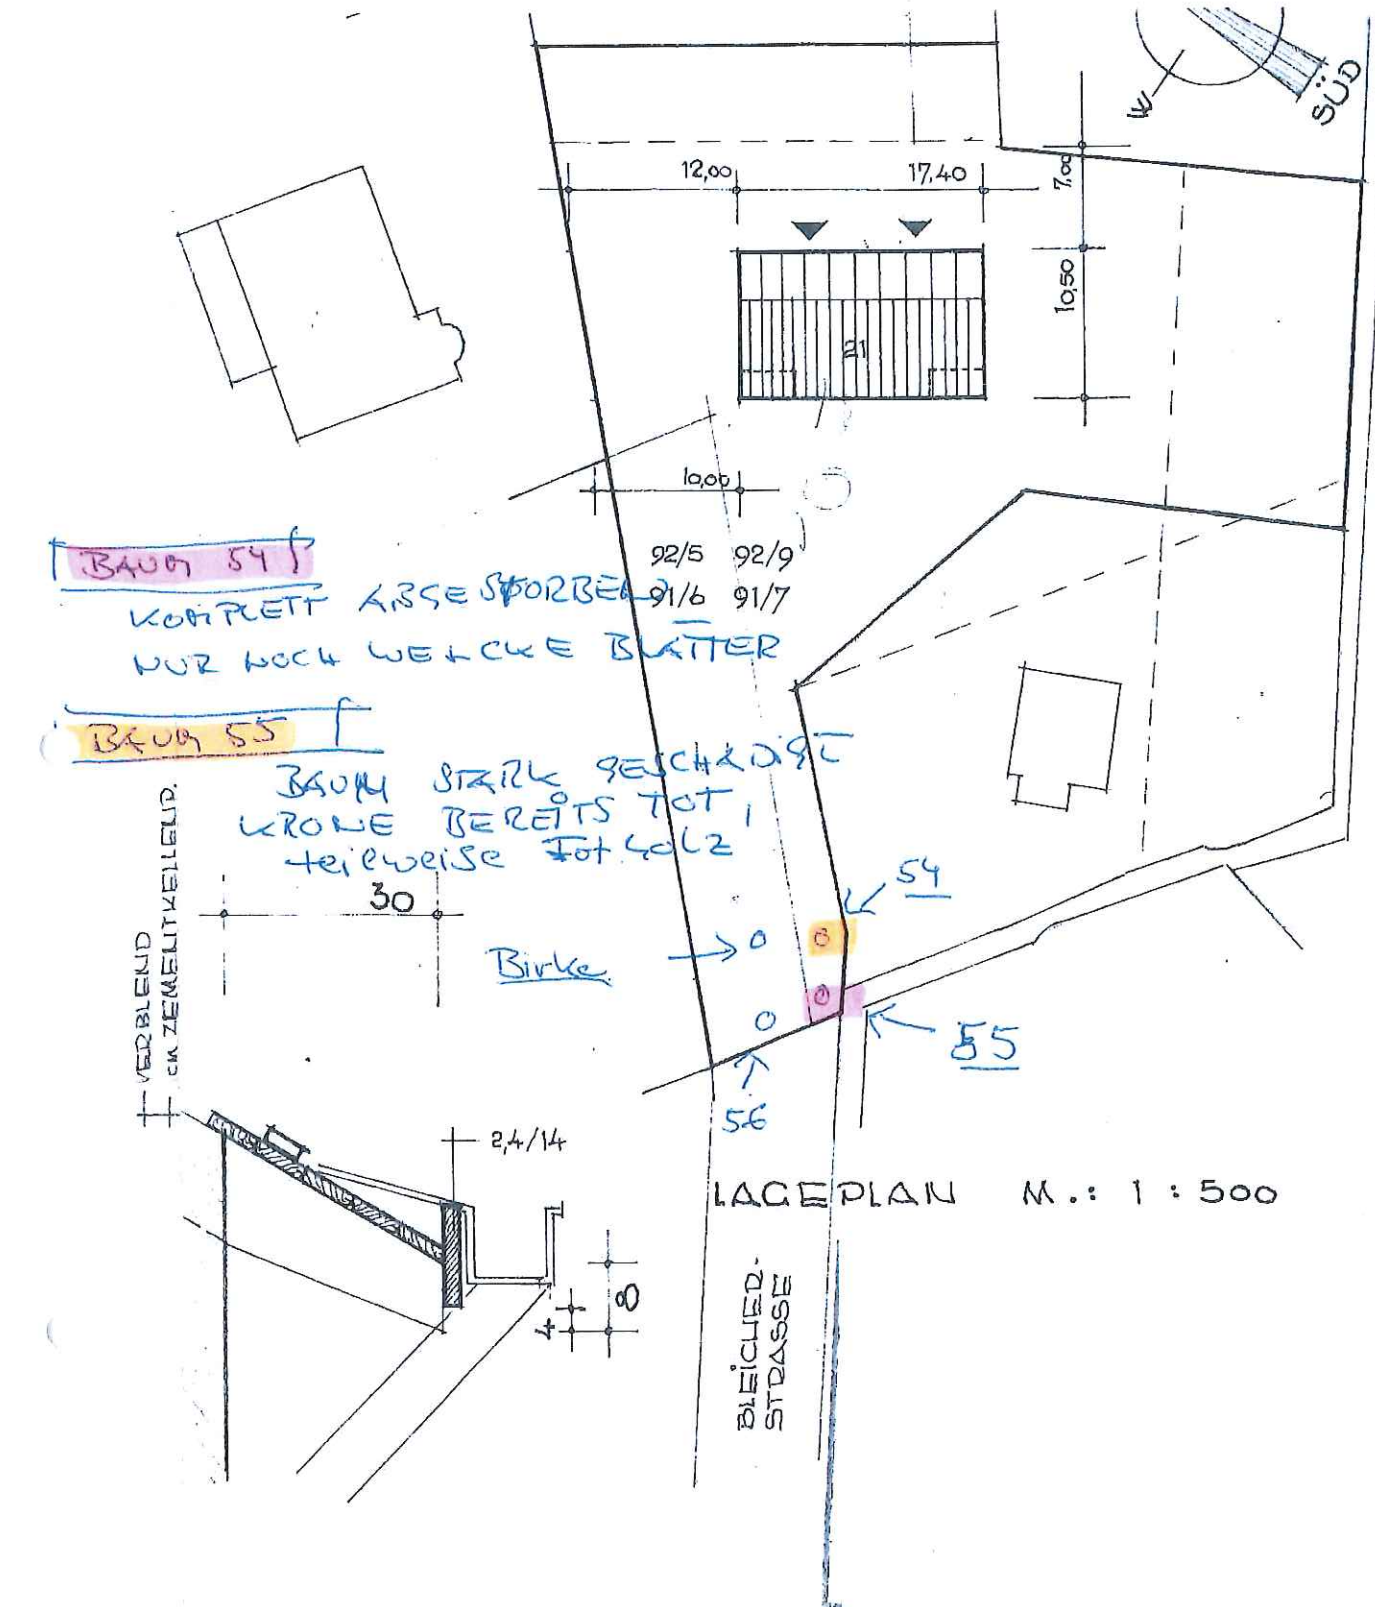 W
SÜD
12,00
17,40
7,00
10,50
21
10,00
BAUM 54
92/5 92/9
KOMPLETT ABGESTORBEN
91/6 91/7
NUR NOCH WELCKE BLÄTTER
BAUM 55
BAUM STARK GESCHÄDIGT
KRONE BEREITS TOT,
teilweise Totholz
VERBLEND
cm ZEMENTKELLEND.
30
54
Birke
55
56
2,4/14
LAGEPLAN M.: 1 : 500
4
8
BLEICHER-
STRASSE